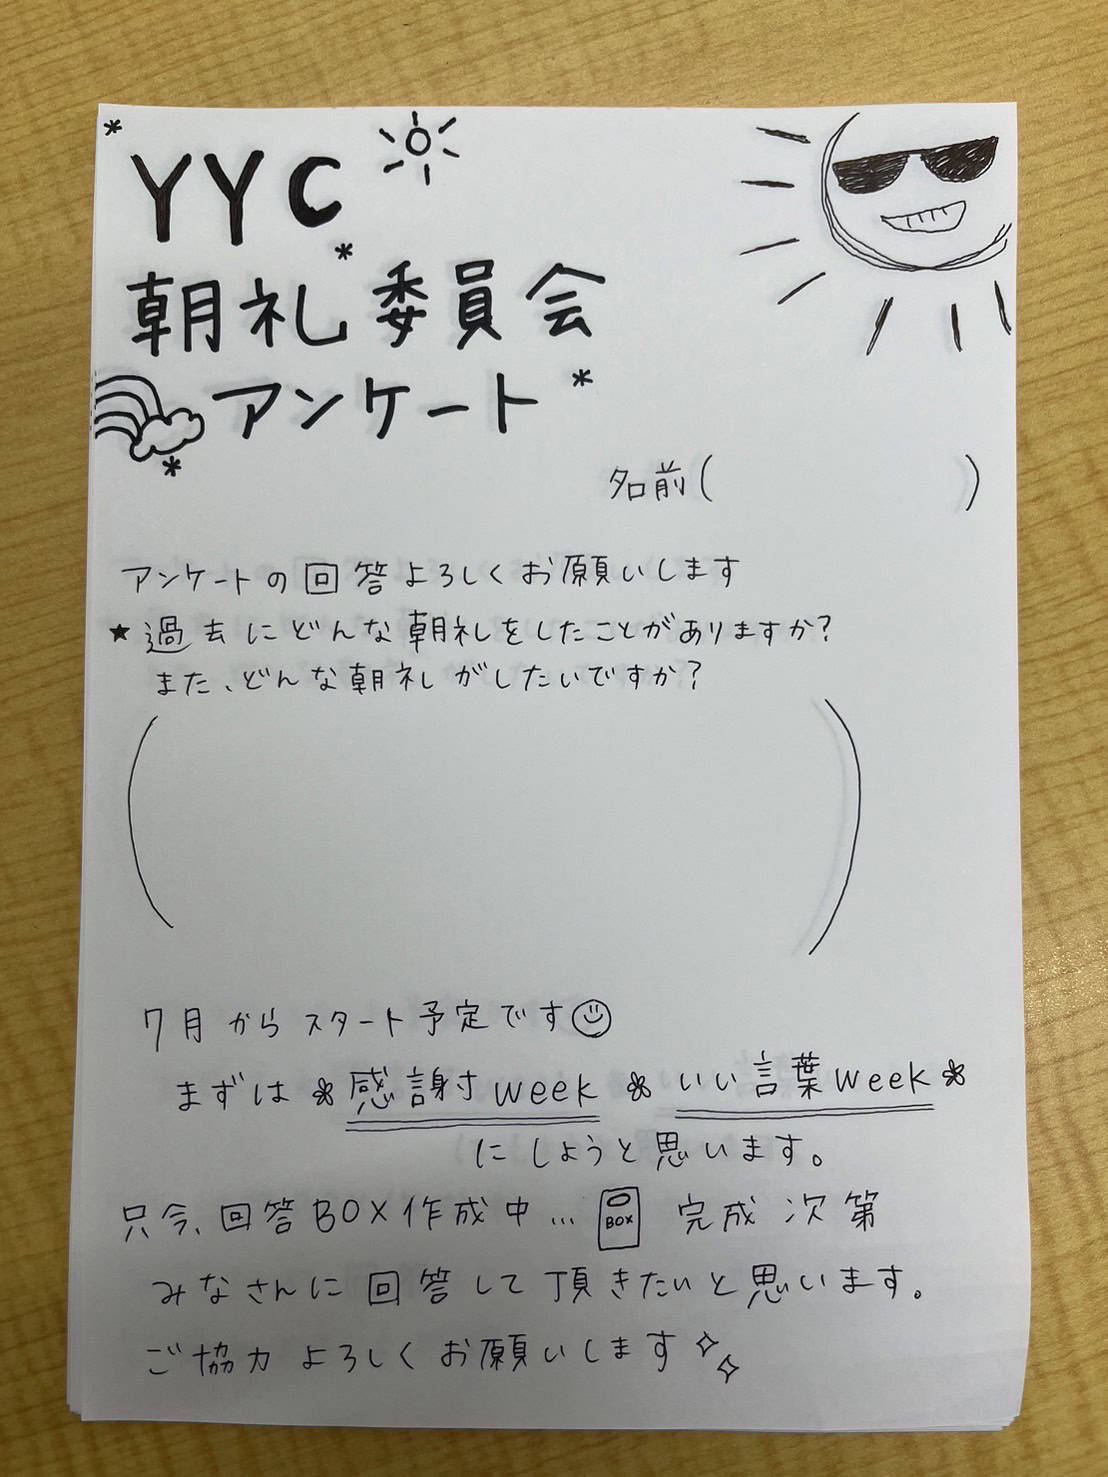 YYC
朝礼委員会
アンケート
名前( )
アンケートの回答よろしくお願いします
★過去にどんな朝礼をしたことがありますか?
また、どんな朝礼がしたいですか?
( )
7月からスタート予定です
まずは 感謝week いい言葉week
にしようと思います。
只今、回答BOX作成中... BOX 完成次第
みなさんに回答して頂きたいと思います。
ご協力よろしくお願いします